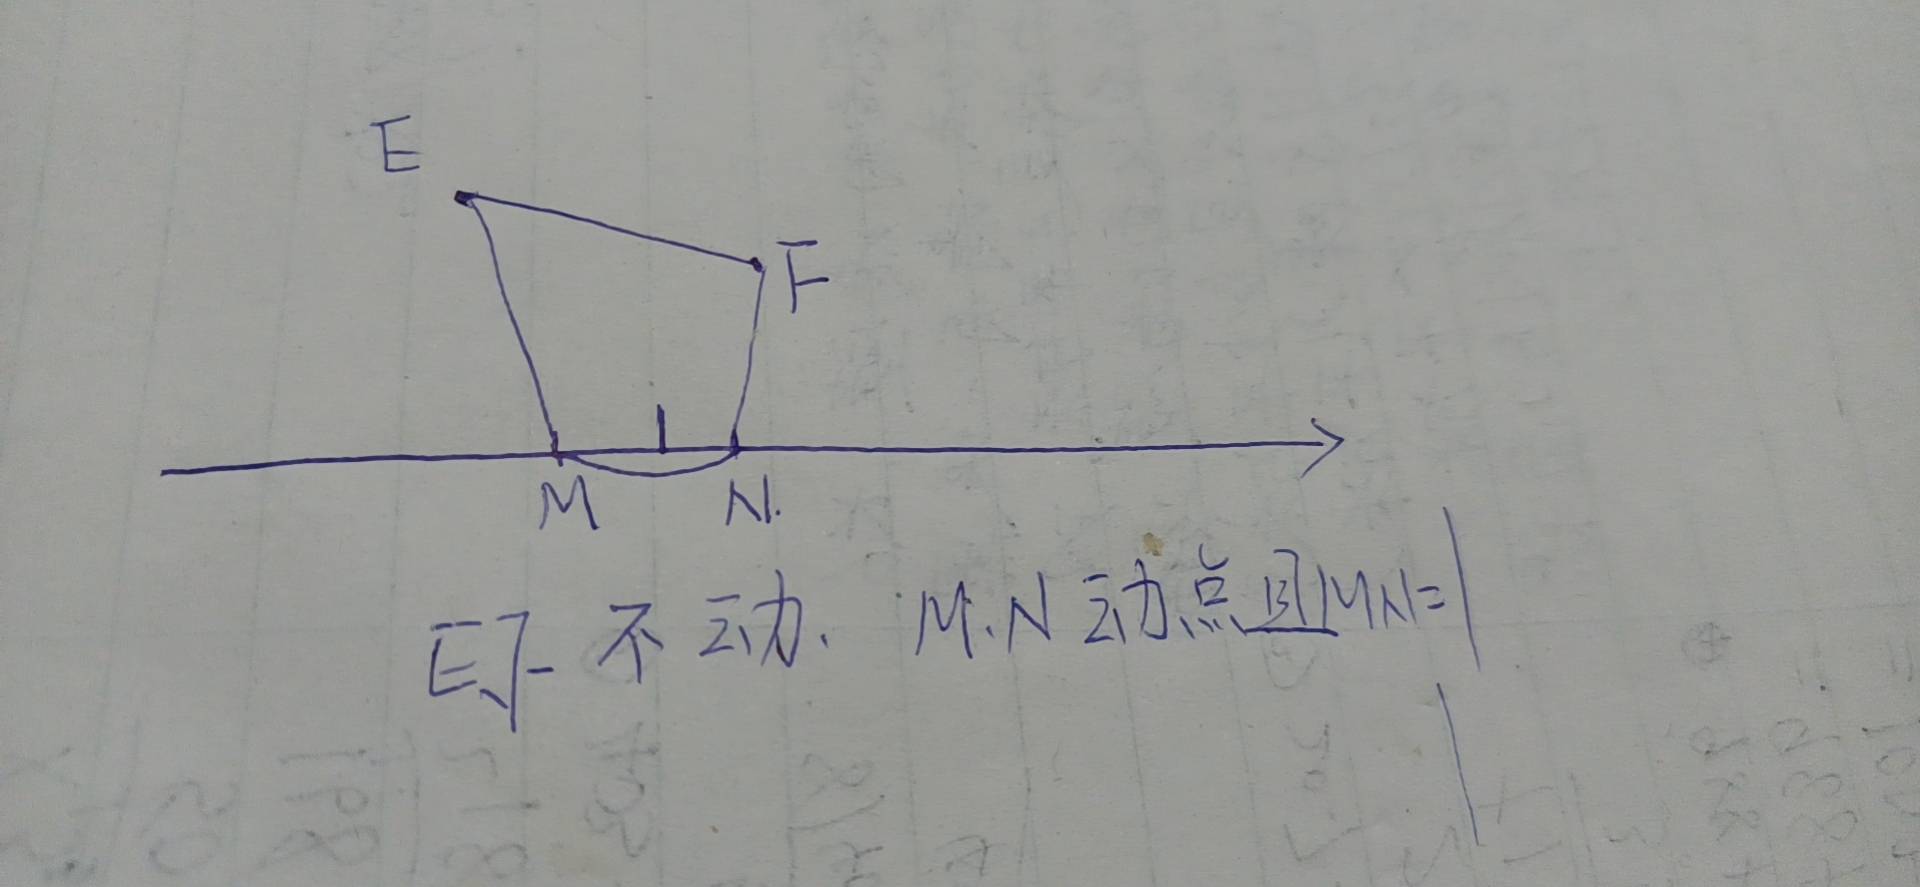 E
F
M N.
E、F不动. M.N动点且MN=1